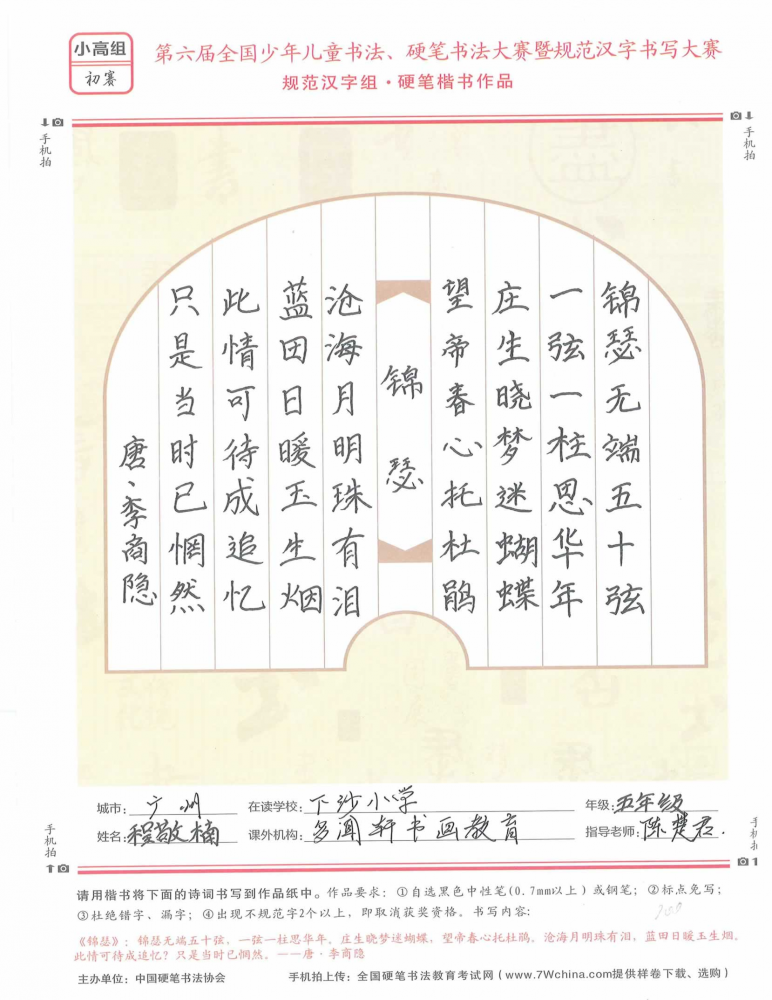 小高组
初赛
第六届全国少年儿童书法、硬笔书法大赛暨规范汉字书写大赛
规范汉字组·硬笔楷书作品
手机拍
手机拍
锦瑟无端五十弦
一弦一柱思华年
庄生晓梦迷蝴蝶
望帝春心托杜鹃
锦瑟
沧海月明珠有泪
蓝田日暖玉生烟
此情可待成追忆
只是当时已惘然
唐、李商隐
城市：广州 在读学校：下沙小学 年级：五年级
姓名：程敬楠 课外机构：多闻轩书画教育 指导老师：陈楚君.
手机拍
手机拍
请用楷书将下面的诗词书写到作品纸中。作品要求：①自选黑色中性笔(0.7mm以上)或钢笔；②标点免写；
③杜绝错字、漏字；④出现不规范字2个以上，即取消获奖资格。书写内容：
《锦瑟》：锦瑟无端五十弦，一弦一柱思华年。庄生晓梦迷蝴蝶，望帝春心托杜鹃。沧海月明珠有泪，蓝田日暖玉生烟。
此情可待成追忆？只是当时已惘然。——唐·李商隐
主办单位：中国硬笔书法协会 手机拍上传：全国硬笔书法教育考试网（www.7Wchina.com提供样卷下载、选购）